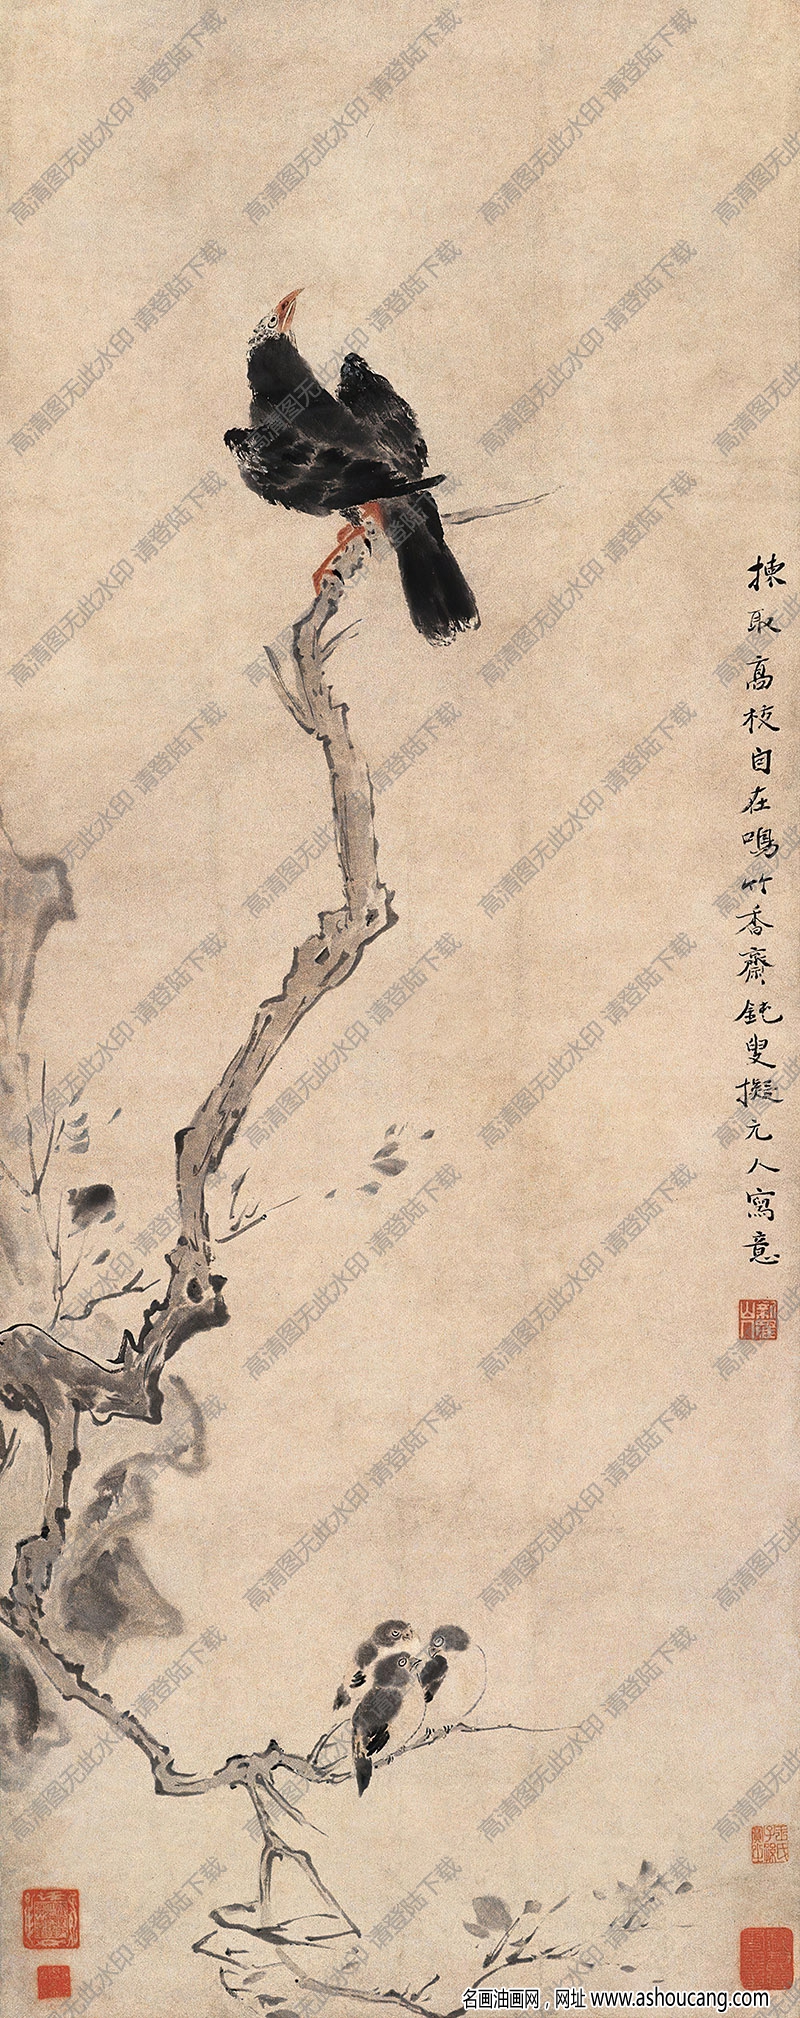 揀取高枝自在鳴竹香齋鈍叟擬元人寫意
新羅山人
高清图无此水印 请登陆下载
名画油画网，网址 www.ashoucang.com